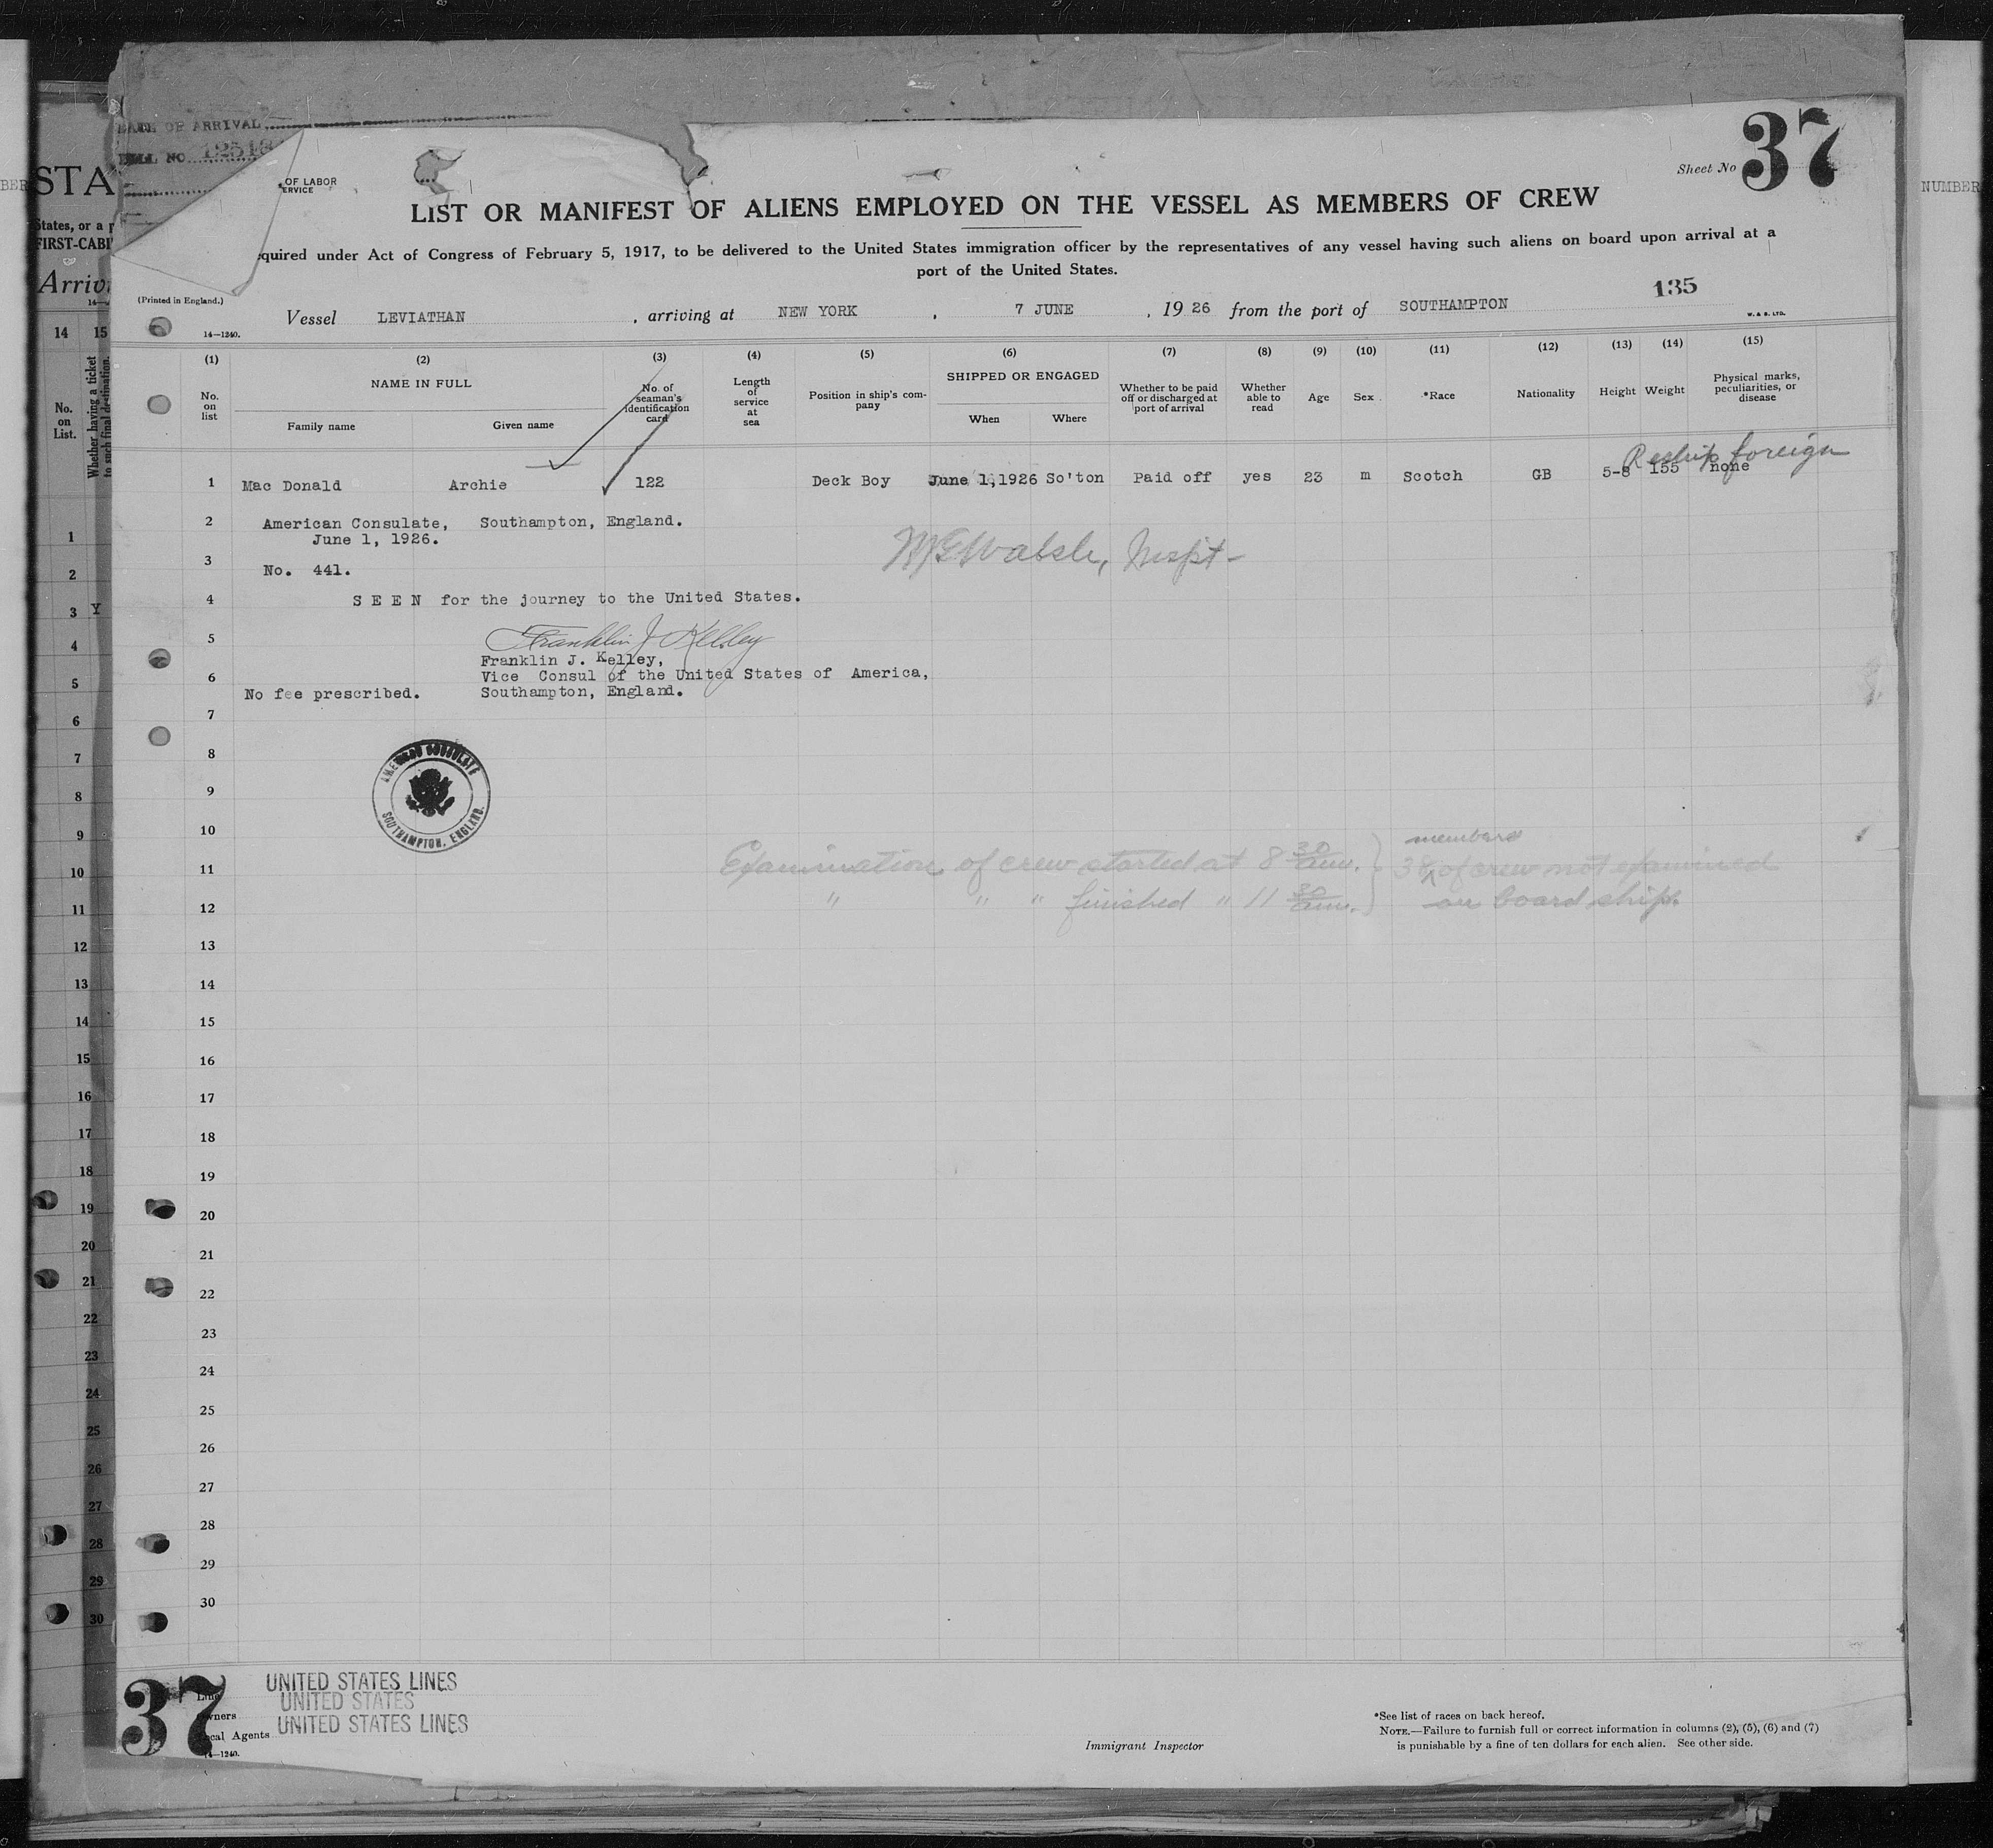 DATE OF ARRIVAL
BILL NO.
OF LABOR
ERVICE
Sheet No 37
LIST OR MANIFEST OF ALIENS EMPLOYED ON THE VESSEL AS MEMBERS OF CREW
quired under Act of Congress of February 5, 1917, to be delivered to the United States immigration officer by the representatives of any vessel having such aliens on board upon arrival at a
port of the United States.
135
(Printed in England.)
Vessel LEVIATHAN, arriving at NEW YORK, 7 JUNE, 1926 from the port of SOUTHAMPTON
14—1240.
W. & S. LTD.
(1) (2) (3) (4) (5) (6) (7) (8) (9) (10) (11) (12) (13) (14) (15)
No. on list
NAME IN FULL
Family name Given name
No. of seaman's identification card
Length of service at sea
Position in ship's company
SHIPPED OR ENGAGED
When Where
Whether to be paid off or discharged at port of arrival
Whether able to read
Age
Sex
*Race
Nationality
Height
Weight
Physical marks, peculiarities, or disease
Reship foreign
1 Mac Donald Archie 122 Deck Boy June 1,1926 So'ton Paid off yes 23 m Scotch GB 5-8 155 none
2 American Consulate, Southampton, England.
June 1, 1926.
3 No. 441.
4 S E E N for the journey to the United States.
5 Franklin J Kelley
Franklin J. Kelley,
6 Vice Consul of the United States of America,
No fee prescribed. Southampton, England.
7
8
AMERICAN CONSULATE
SOUTHAMPTON, ENGLAND.
9
10
members
11 Examination of crew started at 8 30 am. 38 of crew not examined
12 " " " finished " 11 30 am. on board ship.
13
14
15
16
17
18
19
20
21
22
23
24
25
26
27
28
29
30
37
UNITED STATES LINES
UNITED STATES
wners
cal Agents UNITED STATES LINES
14—1240.
Immigrant Inspector
*See list of races on back hereof.
NOTE.—Failure to furnish full or correct information in columns (2), (5), (6) and (7)
is punishable by a fine of ten dollars for each alien. See other side.
STA
States, or a p
FIRST-CABI
Arriv
14 15
No. on List.
Whether having a ticket to such final destination.
1
2
3 Y
4
5
6
7
8
9
10
11
12
13
14
15
16
17
18
19
20
21
22
23
24
25
26
27
28
29
30
BER
NUMBER